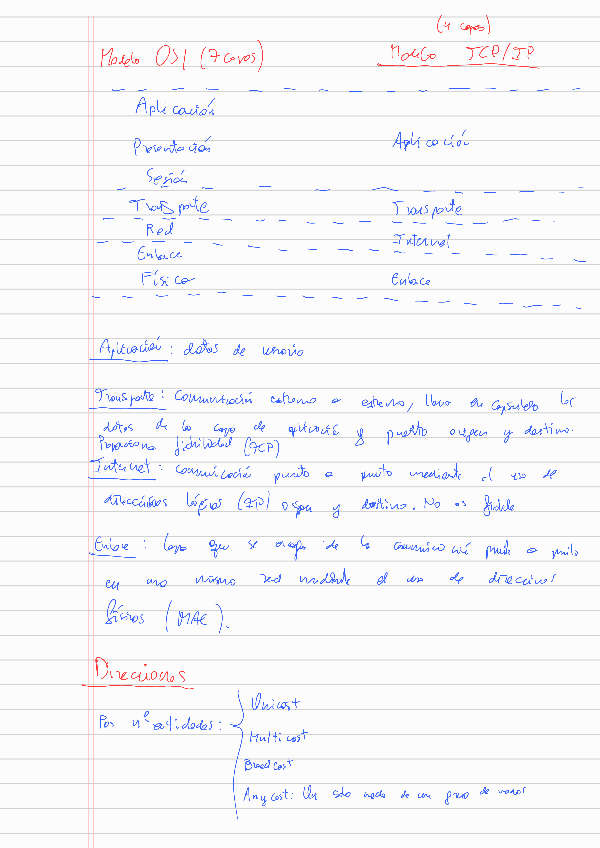 (4 capas)
Modelo OSI (7 capas) Modelo TCP/IP
Aplicación
Presentación Aplicación
Sesión
Transporte Transporte
Red Internet
Enlace
Físico Enlace
Aplicación: datos de usuario
Transporte: Comunicación extremo a extremo, lleva encapsulado los
datos de la capa de aplicación y puerto origen y destino.
Proporciona fiabilidad (TCP)
Internet: Comunicación punto a punto mediante el uso de
direcciones lógicas (IP) origen y destino. No es fiable
Enlace: capa que se encarga de la comunicación punto a punto
en una misma red mediante el uso de direcciones
físicas (MAC).
Direcciones
Por nº entidades: Unicast
Multicast
Broadcast
Anycast: Un solo nodo de un grupo de